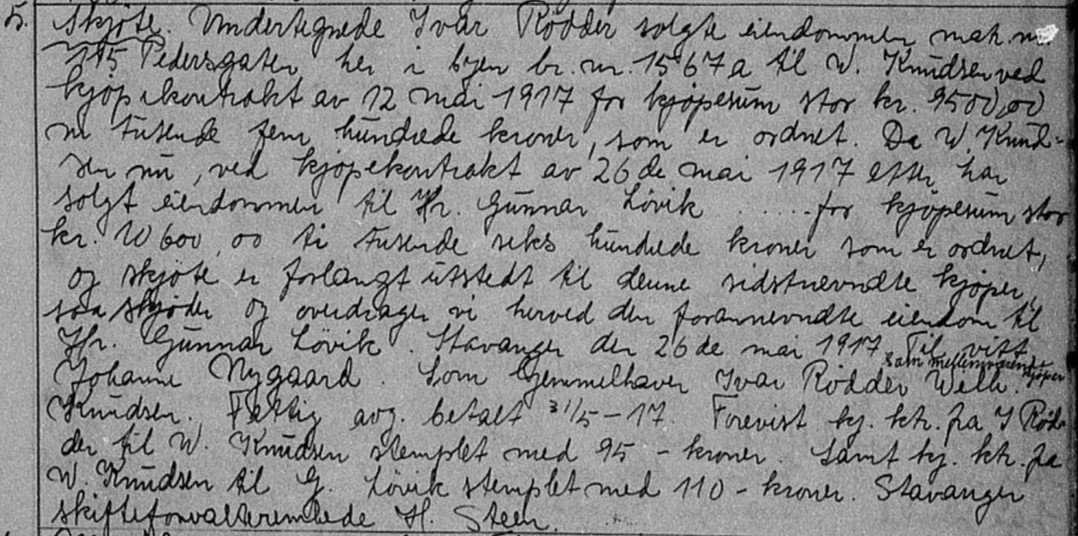 5. Skjöte. Undertegnede Ivar Rödder solgte eiendommen mat. nr.
115 Pedersgaten her i byen br. nr. 1567a til W. Knudsen ved
kjöpekontrakt av 12 mai 1917 for kjöpesum stor kr. 9500,00
ni tusende fem hundrede kroner, som er ordnet. Da W. Knud-
sen nu, ved kjöpekontrakt av 26de mai 1917 efter har
solgt eiendommen til Hr. Gunnar Lövik ..... for kjöpesum stor
kr. 10600,00 ti tusende seks hundrede kroner som er ordnet,
og skjöte er forlangt utstedt til denne sidstnevndte kjöper,
saa skjöder og overdrager vi herved den forannevndte eiendom til
Hr. Gunnar Lövik. Stavanger den 26de mai 1917. Til vitt.
Johanne Nygaard. Som hjemmelhaver Ivar Rödder Welh.
som mellemværende kjöper
Knudsen. Fattig avg. betalt 31/5-17. Forevist kj. ktr. fra I Röd-
der til W. Knudsen stemplet med 95 - kroner. Samt kj. ktr. fra
W. Knudsen til G. Lövik stemplet med 110 - kroner. Stavanger
skifteforvalterembede H. Steen.